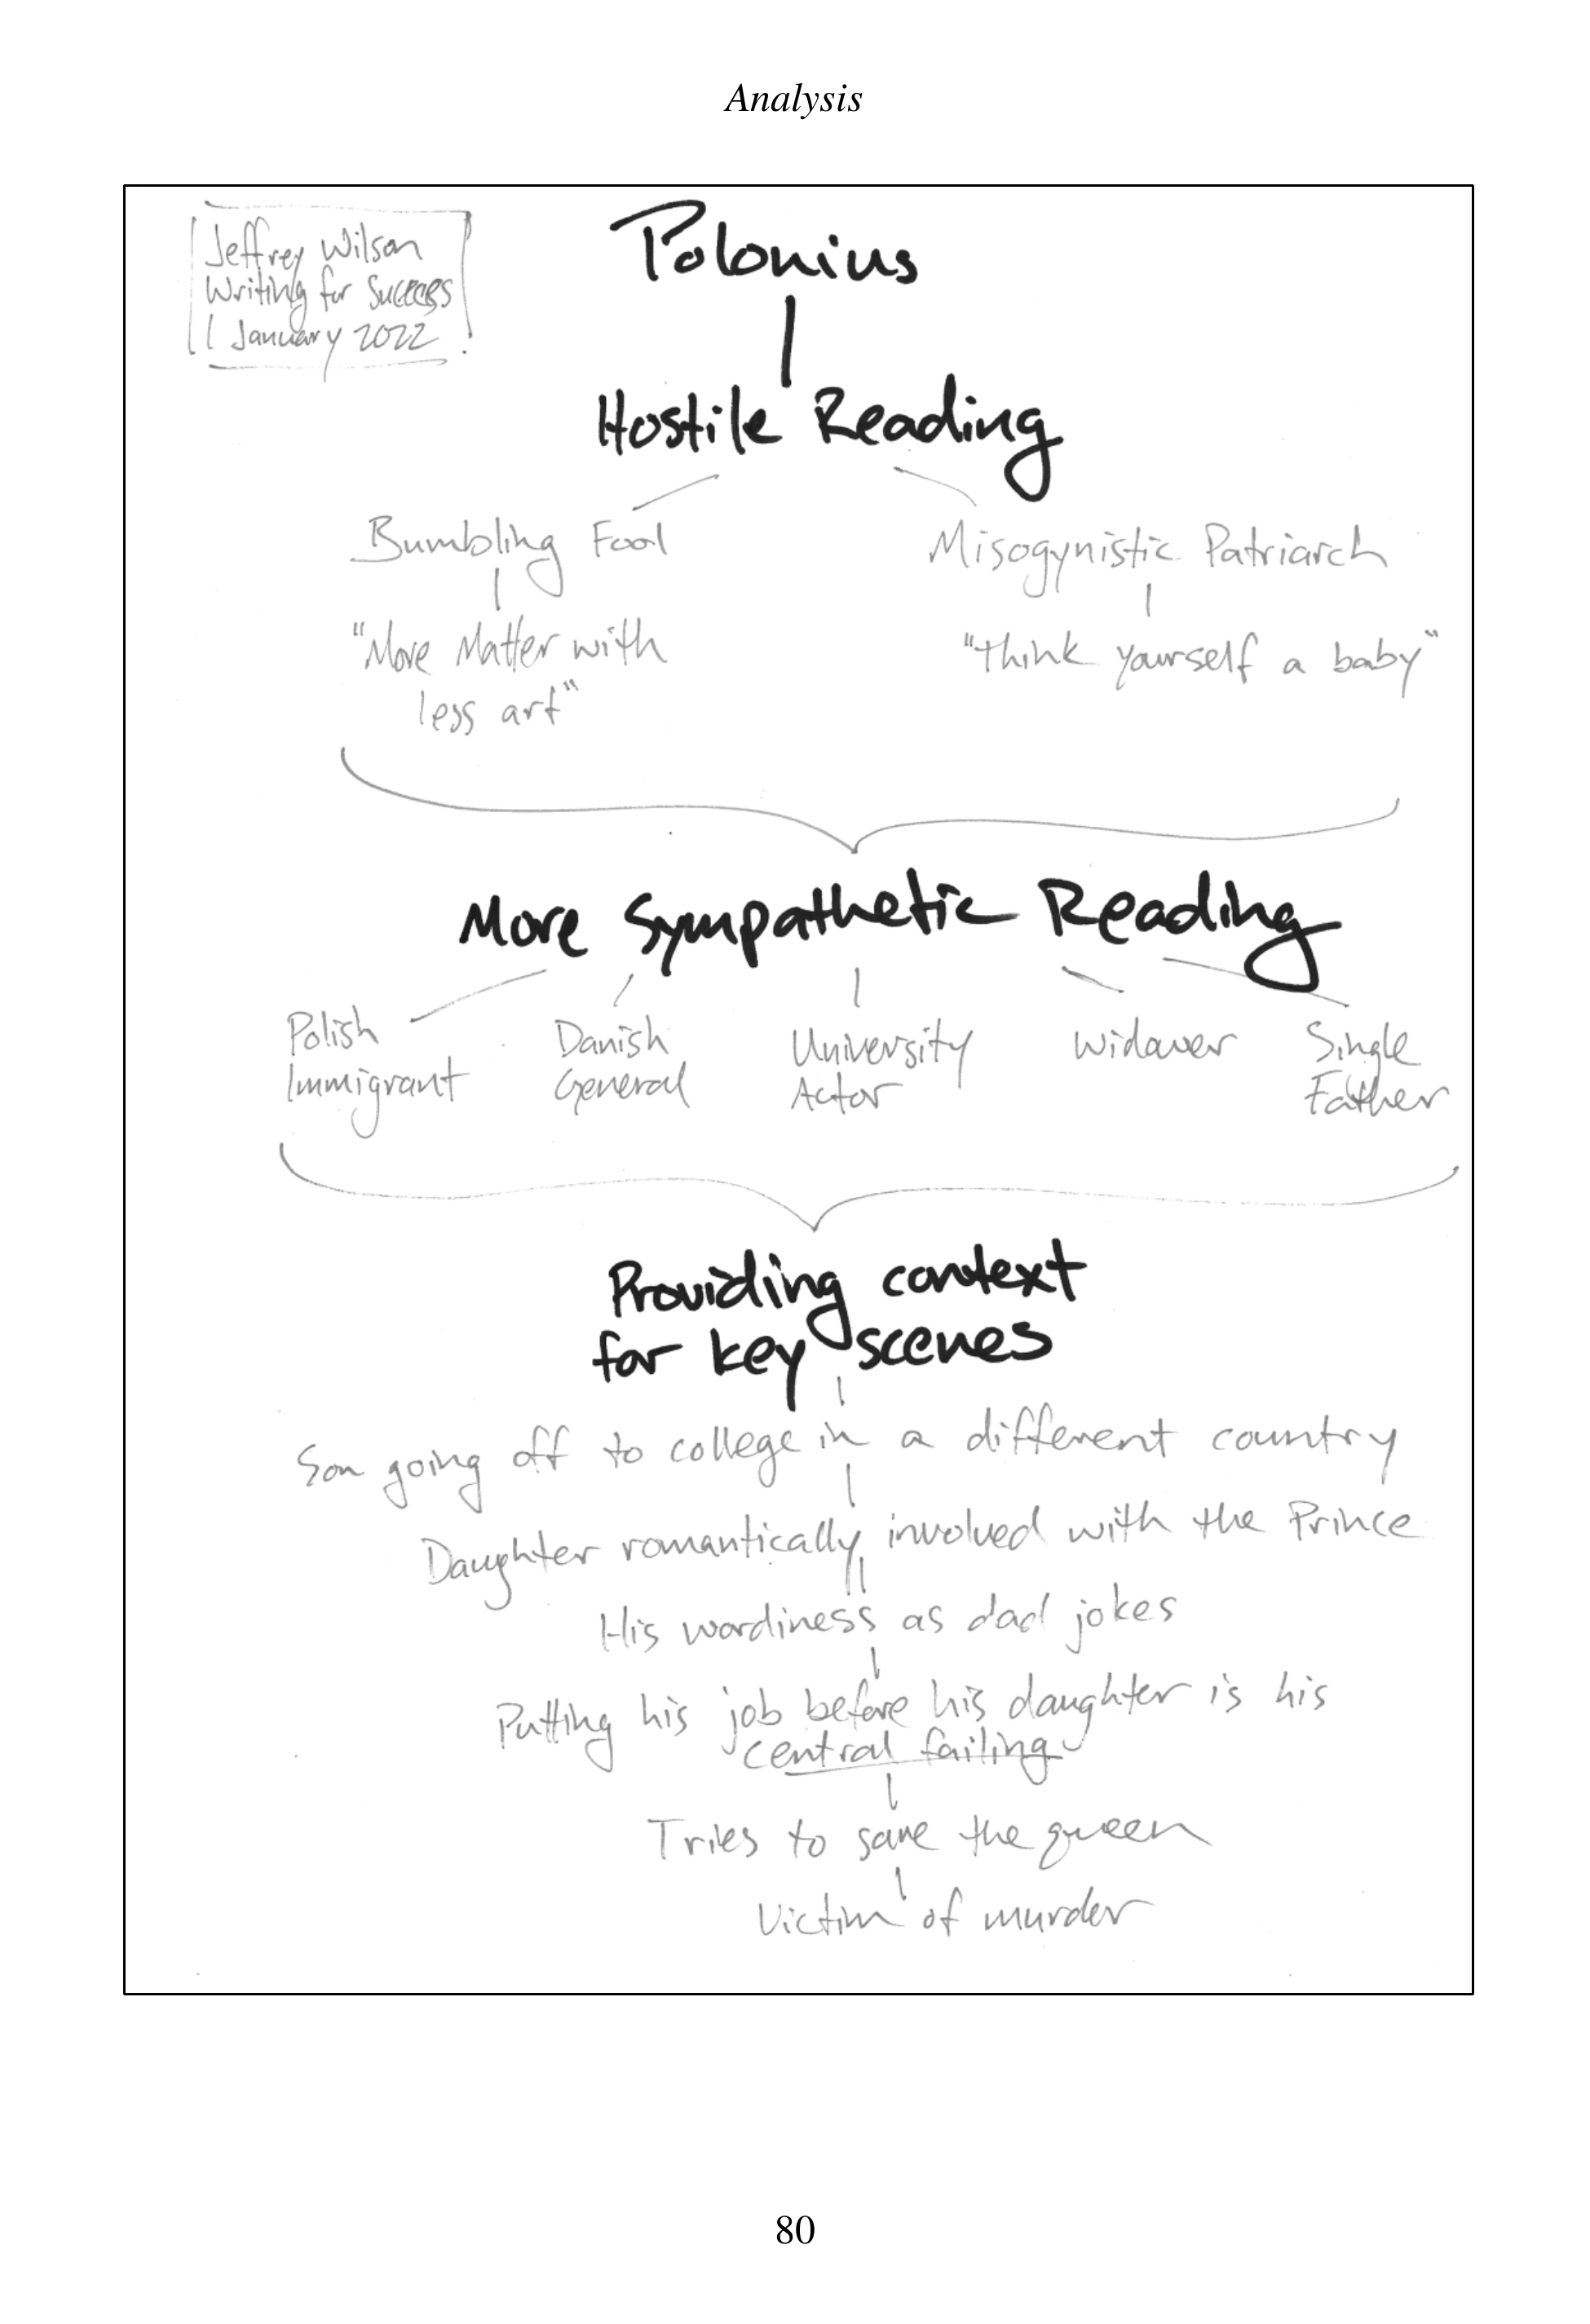 Analysis
Jeffrey Wilson
Writing for Success
1 January 2022
Polonius
Hostile Reading
Bumbling Fool
Misogynistic Patriarch
"More Matter with
less art"
"think yourself a baby"
More Sympathetic Reading
Polish
Immigrant
Danish
General
University
Actor
Widower
Single
Father
Providing context
for key scenes
Son going off to college in a different country
Daughter romantically involved with the Prince
His wordiness as dad jokes
Putting his job before his daughter is his
central failing
Tries to save the queen
Victim of murder
80